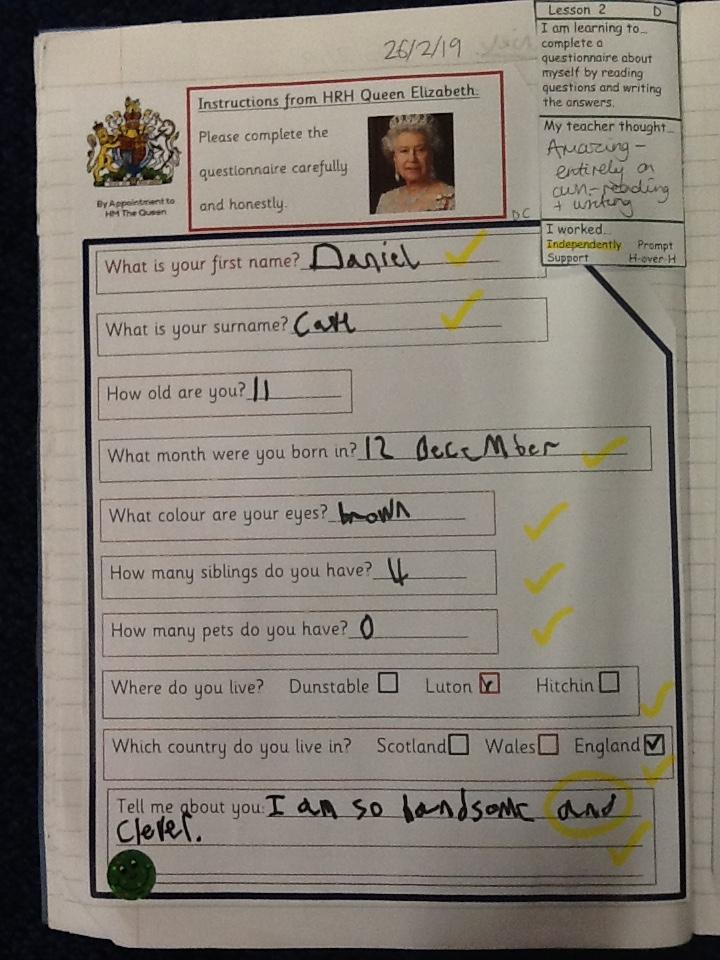 26/2/19
Lesson 2 D
I am learning to...
complete a
questionnaire about
myself by reading
questions and writing
the answers.
My teacher thought...
Amazing -
entirely on
own - reading
+ writing
I worked...
Independently Prompt
Support H-over-H
Instructions from HRH Queen Elizabeth:
Please complete the
questionnaire carefully
and honestly.
DC
By Appointment to
HM The Queen
What is your first name? Daniel
What is your surname?
How old are you? 11
What month were you born in? 12 December
What colour are your eyes? brown
How many siblings do you have? 4
How many pets do you have? 0
Where do you live? Dunstable Luton Hitchin
Which country do you live in? Scotland Wales England
Tell me about you: I am so handsome and
clever.